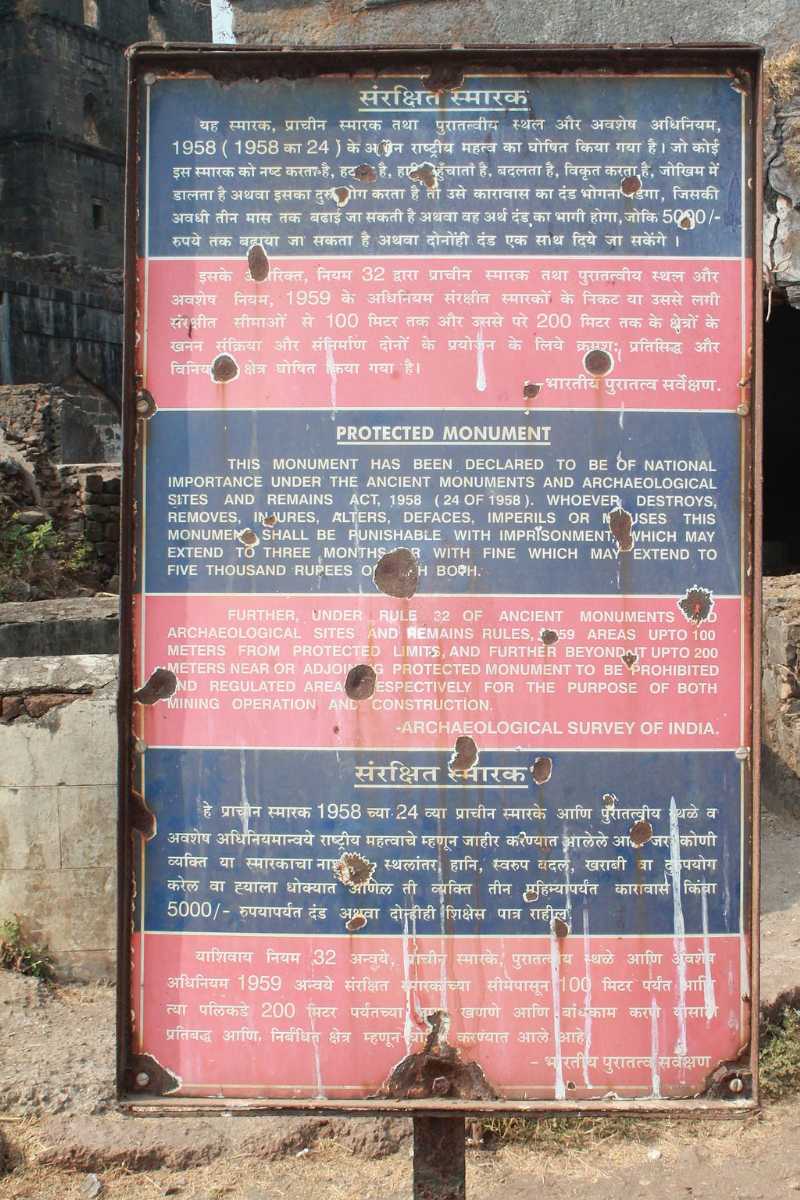 संरक्षित स्मारक
यह स्मारक, प्राचीन स्मारक तथा पुरातत्वीय स्थल और अवशेष अधिनियम,
1958 ( 1958 का 24 ) के राष्ट्रीय महत्व का घोषित किया गया है। जो कोई
इस स्मारक को नष्ट करता है, है, बदलता है, विकृत करता है, जोखिम में
डालता है अथवा इसका करता है तो उसे कारावास का दंड भोगना जिसकी
अवधी तीन मास तक बढाई जा सकती है अथवा वह अर्थ दंड का भागी होगा, जोकि
रुपये तक बढाया जा सकता है अथवा दोनोंही दंड एक साथ दिये जा सकेंगे ।
इसके नियम 32 द्वारा प्राचीन स्मारक तथा पुरातत्वीय स्थल और
अवशेष नियम, 1959 के अधिनियम संरक्षीत स्मारकों के निकट या उससे लगी
संरक्षीत सीमाओं से 100 मिटर तक और उससे परे 200 मिटर तक के क्षेत्रों के
खनन संक्रिया और संनिर्माण दोनों के प्रयोजन के लिये क्रमश: प्रतिसिद्ध और
क्षेत्र घोषित किया गया है।
भारतीय पुरातत्व सर्वेक्षण.
PROTECTED MONUMENT
THIS MONUMENT HAS BEEN DECLARED TO BE OF NATIONAL
IMPORTANCE UNDER THE ANCIENT MONUMENTS AND ARCHAEOLOGICAL
SITES AND REMAINS ACT, 1958 (24 OF 1958). WHOEVER DESTROYS,
REMOVES, INJURES, ALTERS, DEFACES, IMPERILS OR THIS
MONUMENT SHALL BE PUNISHABLE WITH IMPRISONMENT, WHICH MAY
EXTEND TO THREE MONTHS OR WITH FINE WHICH MAY EXTEND TO
FIVE THOUSAND RUPEES BOTH.
FURTHER, UNDER RULE 32 OF ANCIENT MONUMENTS
ARCHAEOLOGICAL SITES AND REMAINS RULES, AREAS UPTO 100
METERS FROM PROTECTED LIMITS, AND FURTHER BEYOND IT UPTO 200
METERS NEAR OR ADJOINING PROTECTED MONUMENT TO BE PROHIBITED
AND REGULATED AREA RESPECTIVELY FOR THE PURPOSE OF BOTH
MINING OPERATION AND CONSTRUCTION.
-ARCHAEOLOGICAL SURVEY OF INDIA.
संरक्षित स्मारक
हे प्राचीन स्मारक 1958 च्या 24 व्या प्राचीन स्मारके आणि पुरातत्वीय स्थळे व
अवशेष अधिनियमान्वये राष्ट्रीय महत्वाचे म्हणून जाहीर करेण्यात आलेले कोणी
व्यक्ति या स्मारकाचा स्थलांतर, हानि, स्वरुप बदल, खराबी वा
करेल वा ह्याला धोक्यात आणिल ती व्यक्ति तीन महिन्यापर्यंत कारावास किंवा
5000/- रुपयापर्यत दंड अथवा दोन्हीही शिक्षेस पात्र राहील.
याशिवाय नियम 32 अन्वये, प्राचीन स्मारके, पुरातत्वीय स्थळे आणि अवशेष
अधिनियम 1959 अन्वये संरक्षित स्मारकांच्या सीमेपासून 100 मिटर पर्यंत आणि
त्या पलिकडे 200 मिटर पर्यंतच्या खणणे आणि बांधकाम करणे यासाठी
प्रतिबद्ध आणि, निर्बंधित क्षेत्र म्हणून करण्यात आले आहे.
- भारतीय पुरातत्व सर्वेक्षण